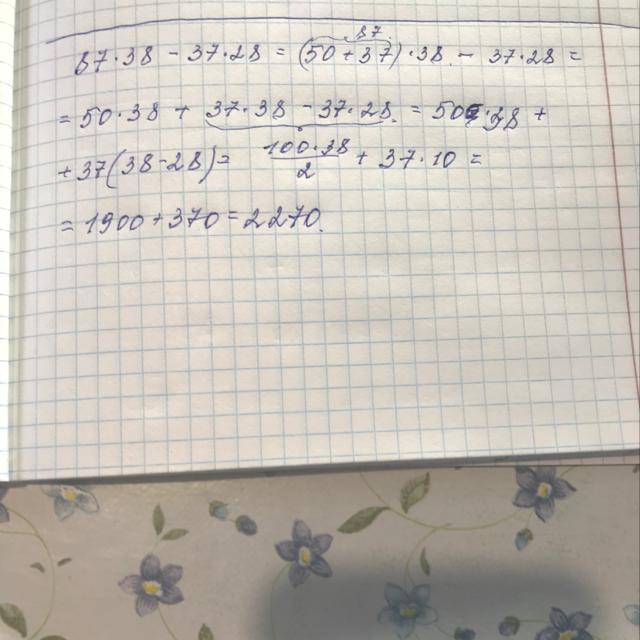 87
87·38 - 37·28 = (50+37)·38 - 37·28 =
= 50·38 + 37·38 - 37·28 = 50·38 +
+ 37(38-28) = 100·38/2 + 37·10 =
= 1900 + 370 = 2270.